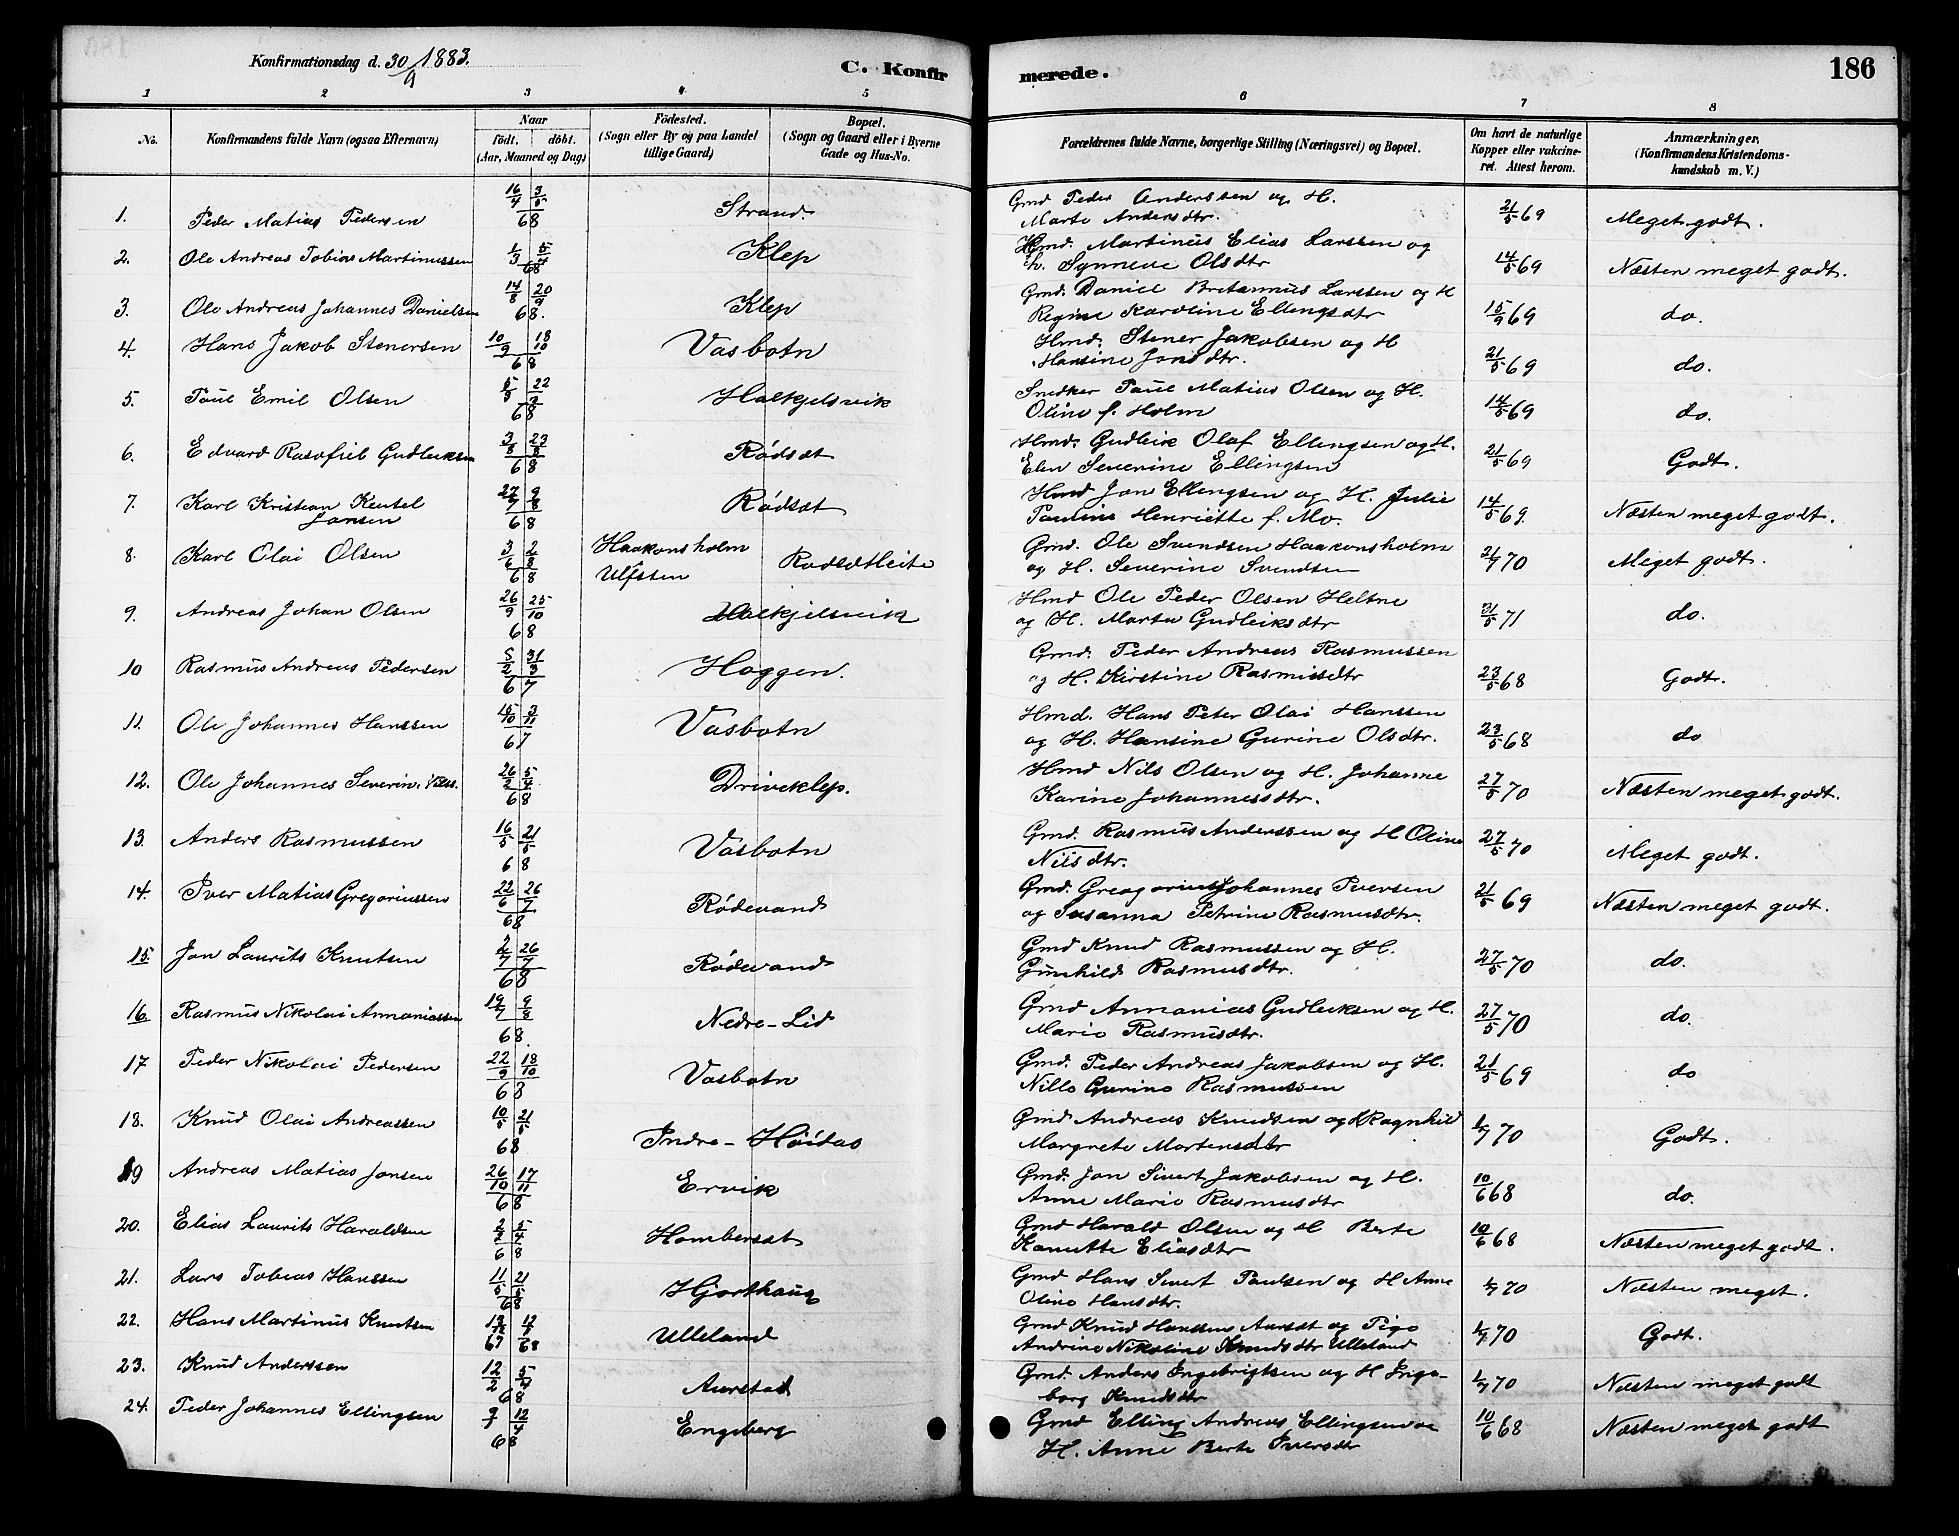 Konfirmationsdag d. 30/9 1883.
C. Konfir
merede.
186
1 2 3 4 5 6 7 8
No.
Konfirmandens fulde Navn (ogsaa Efternavn)
Naar
födt. döbt.
(Aar, Maaned og Dag)
Födested.
(Sogn eller By og paa Landet
tillige Gaard)
Bopæl.
(Sogn og Gaard eller i Byerne
Gade og Hus-No.
Forældrenes fulde Navne, borgerlige Stilling (Næringsvei) og Bopæl.
Om havt de naturlige
Kopper eller vakcine-
ret. Attest herom.
Anmærkninger,
(Konfirmandens Kristendoms-
kundskab m. V.)
1. Peder Matias Pedersen 16/4 3/5 68 Strand. Gmd Peder Anderssen og H.
Marte Andersdtr. 21/5 69 Meget godt.
2. Ole Andreas Tobias Martinussen 1/3 5/4 68 Klep Hmd. Martinus Elias Larssen og
h. Synneve Olsdtr 14/5 69 Næsten meget godt.
3. Ole Andreas Johannes Danielsen 14/8 20/9 68. Klep Gmd. Daniel Larssen og H
Regine Karoline Ellingsdtr 15/9 69 do.
4. Hans Jakob Stenersen 10/9 18/10 68 Vasbotn Hmd. Stener Jakobsen og H
Hansine Jonsdtr. 21/5 69 do.
5. Paul Emil Olsen 68 Halkjelsvik Snedker Paul Matias Olsen og H.
Oline f. Holm 14/5 69 do.
6. Edvard Gudleiksen 3/8 23/8 68 Rødsæt Hmd. Gudleik Olaf Ellingsen og H.
Elen Severine Ellingsen 21/5 69 Godt.
7. Karl Kristian Kentel
Jansen 27/7 9/8 68 Rødsæt Hmd Jon Ellengsen og H. Julie
Pauline Henriette f. Mo. 14/5 69. Næsten meget godt.
8. Karl Olai Olsen 3/6 2/8 68 Haakonsholm
Ulfsten Rødsætleite Gmd. Ole Svendsen Haakonsholm
og H. Severine Svendsen 21/7 70 Meget godt.
9. Andreas Johan Olsen 26/9 25/10 68 Halkjelsvik Hmd Ole Peder Olsen Heltne
og H. Marta Gudleiksdtr 31/5 71 do.
10 Rasmus Andreas Pedersen 5/2 31/3 67 Haggen. Gmd. Peder Andreas Rasmussen
og H. Kirstine Rasmusdtr 23/5 68 Godt.
11. Ole Johannes Hanssen 15/10 3/11 67 Vasbotn Hmd. Hans Peter Olai Hanssen
og H. Hansine Gurine Olsdtr. 23/5 68 do
12. Ole Johannes Severin Nilss. 26/2 5/4 68 Driveklep. Hmd Nils Olsen og H. Johanne
Karine Johannesdtr. 27/5 70 Næsten meget godt.
13. Anders Rasmussen 16/5 21/5 68 Vasbotn Gmd. Rasmus Anderssen og H Oline
Nilsdtr. 27/5 70 Meget godt.
14. Iver Matias Gregoriussen 22/6 26/7 68 Rödevand Gmd. Gregorius Johannes Iversen
og Susanna Petrine Rasmusdtr. 21/5 69 Næsten meget godt.
15. Jon Laurits Knutsen 2/7 26/7 68 Rödevand Gmd Knud Rasmussen og H.
Gunhild Rasmusdtr. 27/5 70 do.
16 Rasmus Nikolai Annaniassen 19/7 9/8 68. Nedre-Lid Gmd Annanias Gudleiksen og H.
Marie Rasmusdtr. 27/5 70 do.
17 Peder Nikolai Pedersen 22/9 18/10 68 Vasbotn Gmd. Peder Andreas Jakobsen og H.
Nille Gurine Rasmussen 21/5 69 do
18. Knud Olai Andreassen 10/5 21/5 68 Indre-Höidas Gmd Andreas Knudsen og H Ragnhild
Margrete Martensdtr 1/7 70 Godt.
19 Andreas Matias Jonsen 26/10 17/11 68 Ervik Gmd. Jon Sivert Jakobsen og H.
Anne Marie Rasmusdtr 10/6 68 do.
20. Elias Laurits Haraldsen 2/2 5/4 68 Hambersæt Gmd Harald Olsen og H Berte
Kanutte Eliasdtr 10/6 68 Næsten meget godt.
21. Lars Tobias Hanssen 11/5 21/5 68 Hjorthaug Gmd Hans Sivert Paulsen og H Anne
Oline Hansdtr. 1/7 70 Næsten meget.
22. Hans Martinus Knutsen 67 68 Ulleland Gmd Knud Hanssen Aursæt og Pige
Andrine Nikoline Knudsdtr Ulleland 1/7 70 Godt.
23. Knud Anderssen 12/2 5/4 68 Aurstad Gmd. Anders Ingebrigtsen og H Inge-
borg Knudsdtr 1/7 70 Næsten meget godt
24. Peder Johannes Ellingsen 9/1 12/4 68 Engeberg Gmd Elling Andreas Ellingsen og
H. Anne Berte Iversdtr 10/6 68 Næsten meget godt